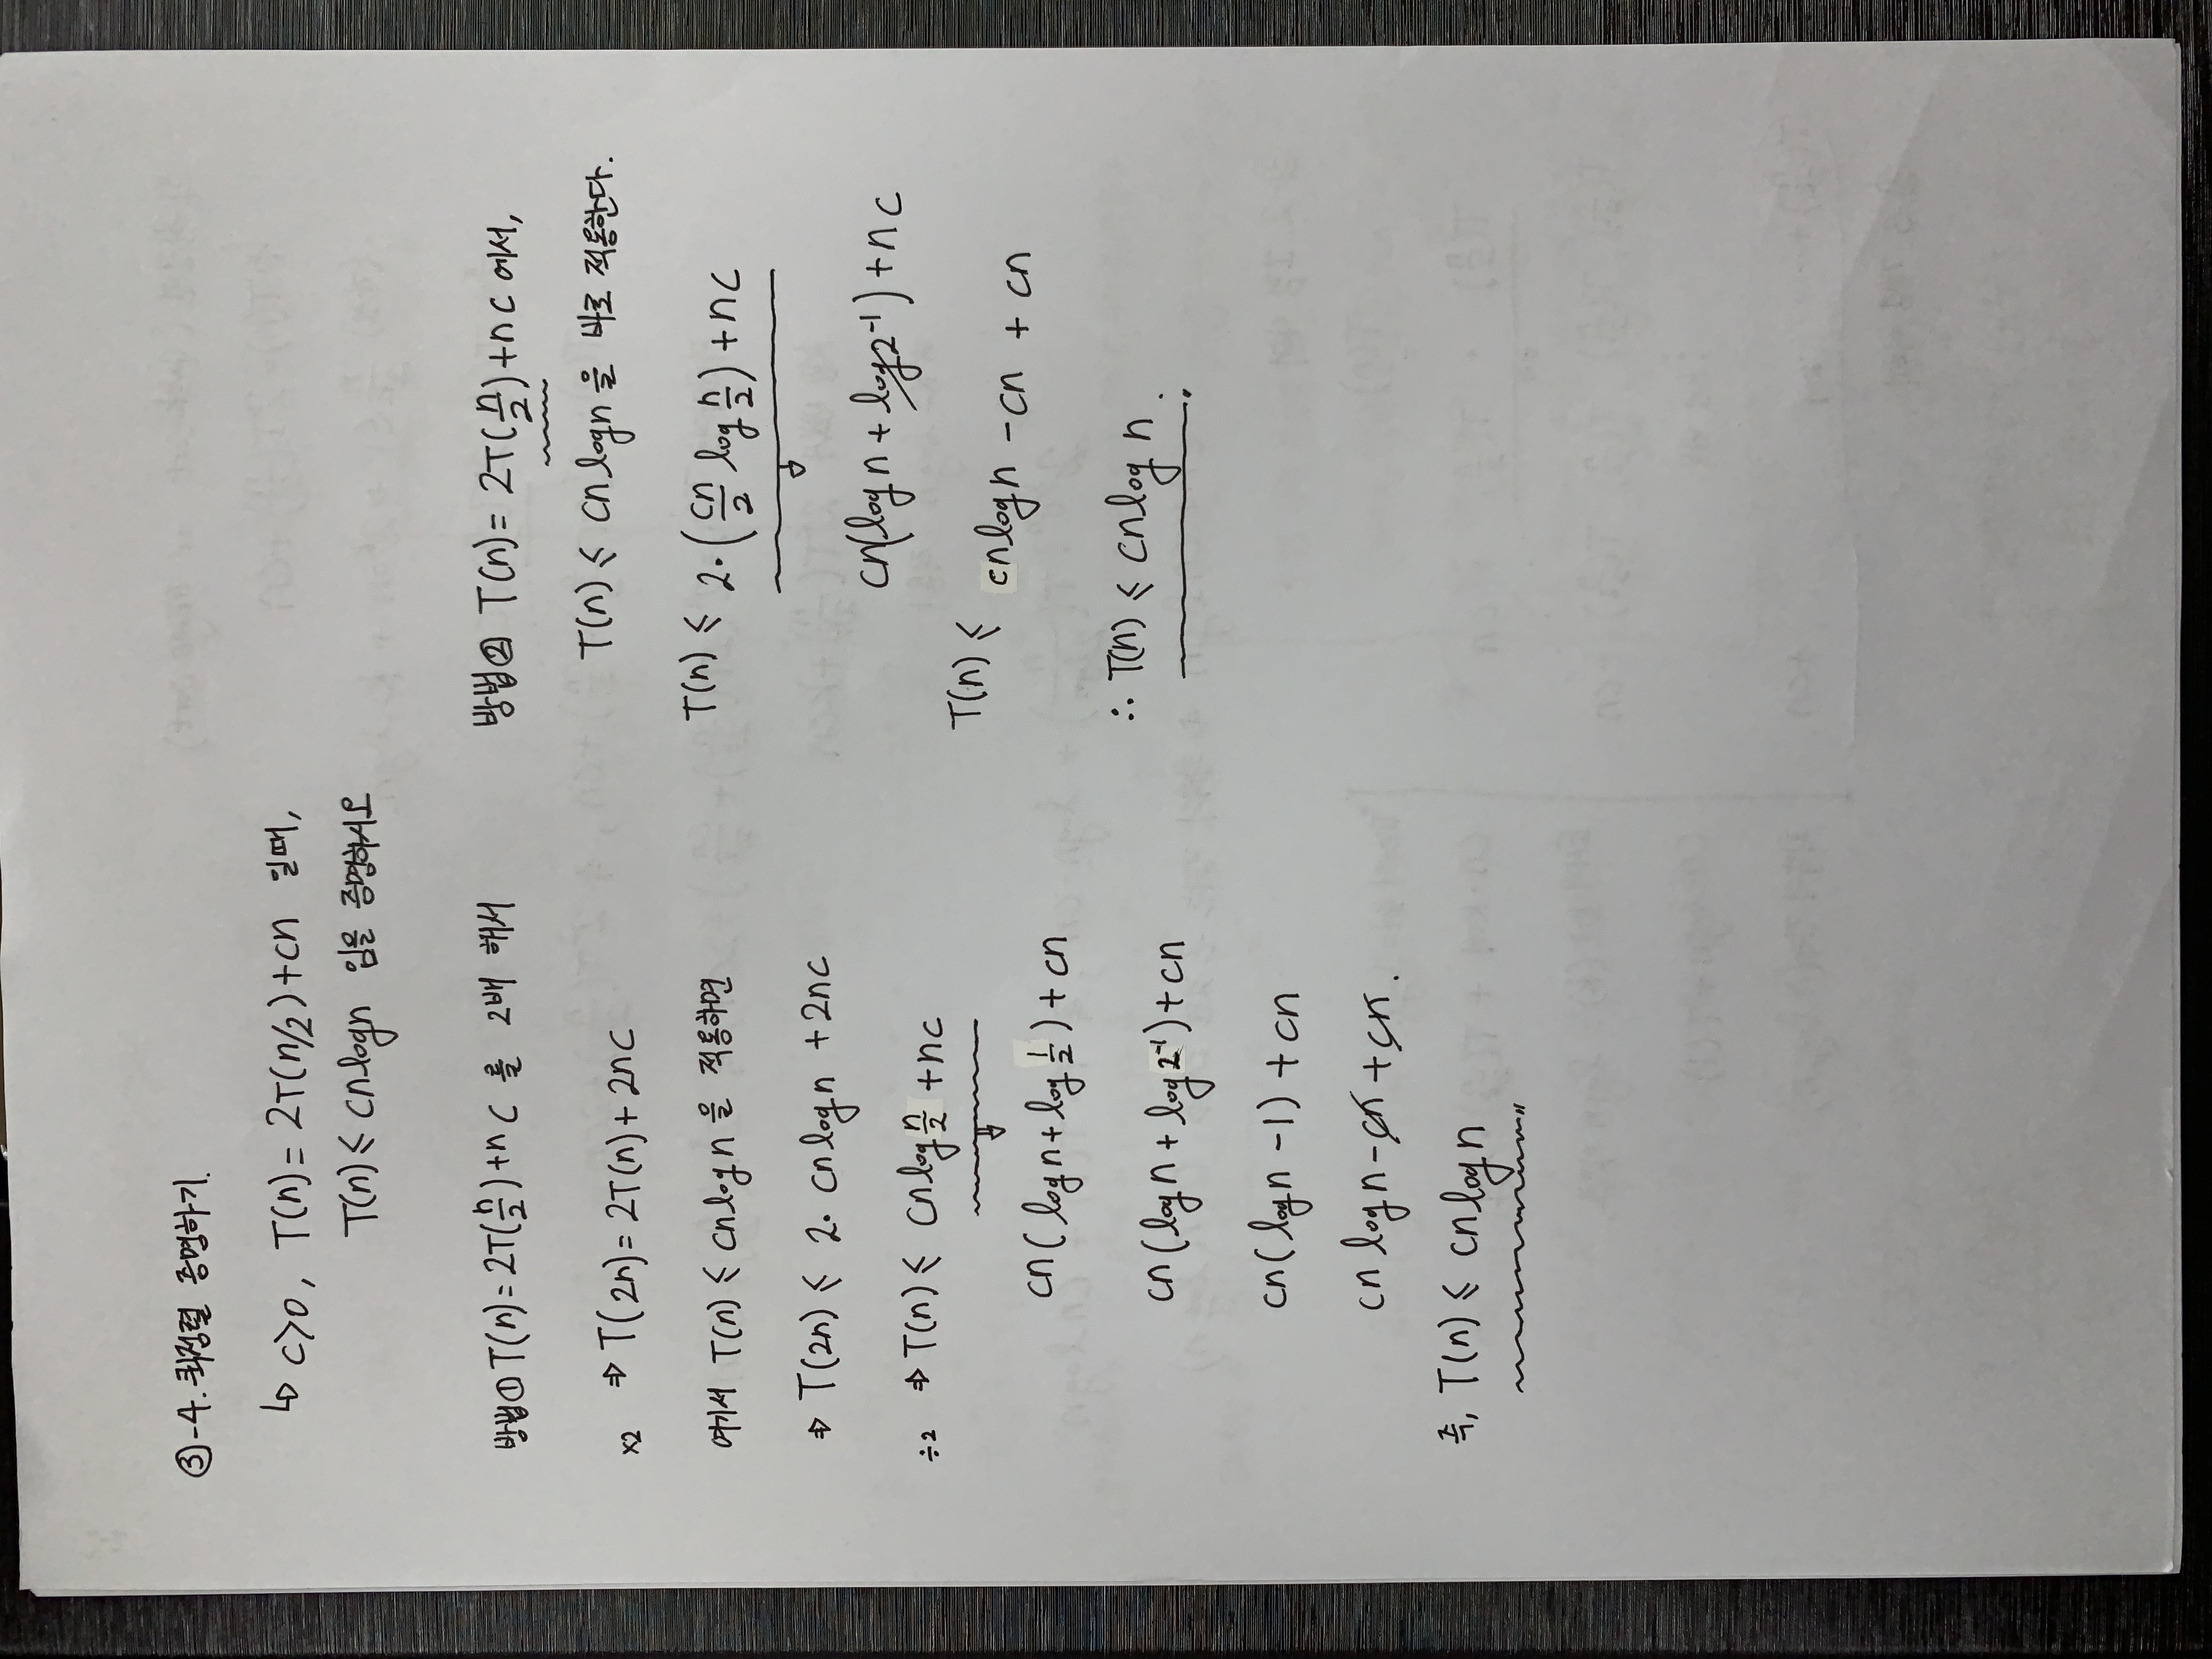 ③-4. 퀵정렬 증명하기.
↳ c>0, T(n) = 2T(n/2)+cn 일때,
T(n) ≤ cnlogn 임을 증명하시오
방법① T(n)=2T(n/2)+nc 를 2배 해서
×2 ⇒ T(2n)=2T(n)+2nc
여기서 T(n) ≤ cnlogn 을 적용하면
⇒ T(2n) ≤ 2· cnlogn +2nc
÷2 ⇒ T(n) ≤ cnlog n/2 +nc
cn(logn+log 1/2)+cn
cn(logn+log2⁻¹)+cn
cn(logn -1)+cn
cn logn-cn+cn.
즉, T(n) ≤ cnlogn
방법② T(n)= 2T(n/2)+nc 에서,
T(n) ≤ cnlogn을 바로 적용한다.
T(n) ≤ 2·(cn/2 log n/2)+nc
cn(logn+log2⁻¹)+nc
T(n) ≤ cnlogn -cn + cn
∴ T(n) ≤ cnlog n.